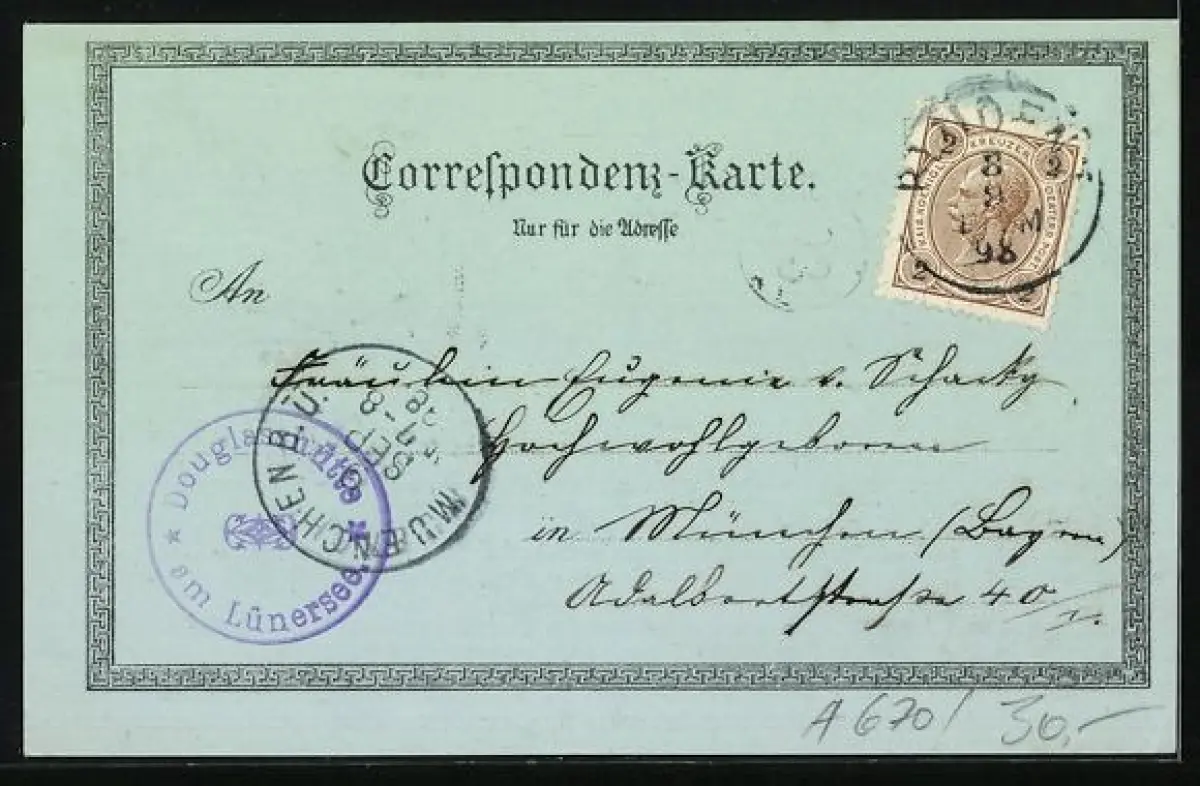 Correspondenz-Karte.
Nur für die Adresse
An
2 KREUZER 2
2 2
8
9
98
Fräulein Eugenie v. Schacky
Hochwohlgeboren
in München (Bayern)
Adalbertstraße 40/I.
★ Douglasshütte ★
am Lünersee.
MÜNCHEN B.Ü.
9 SEP
7-8
98
A 670/ 30,-